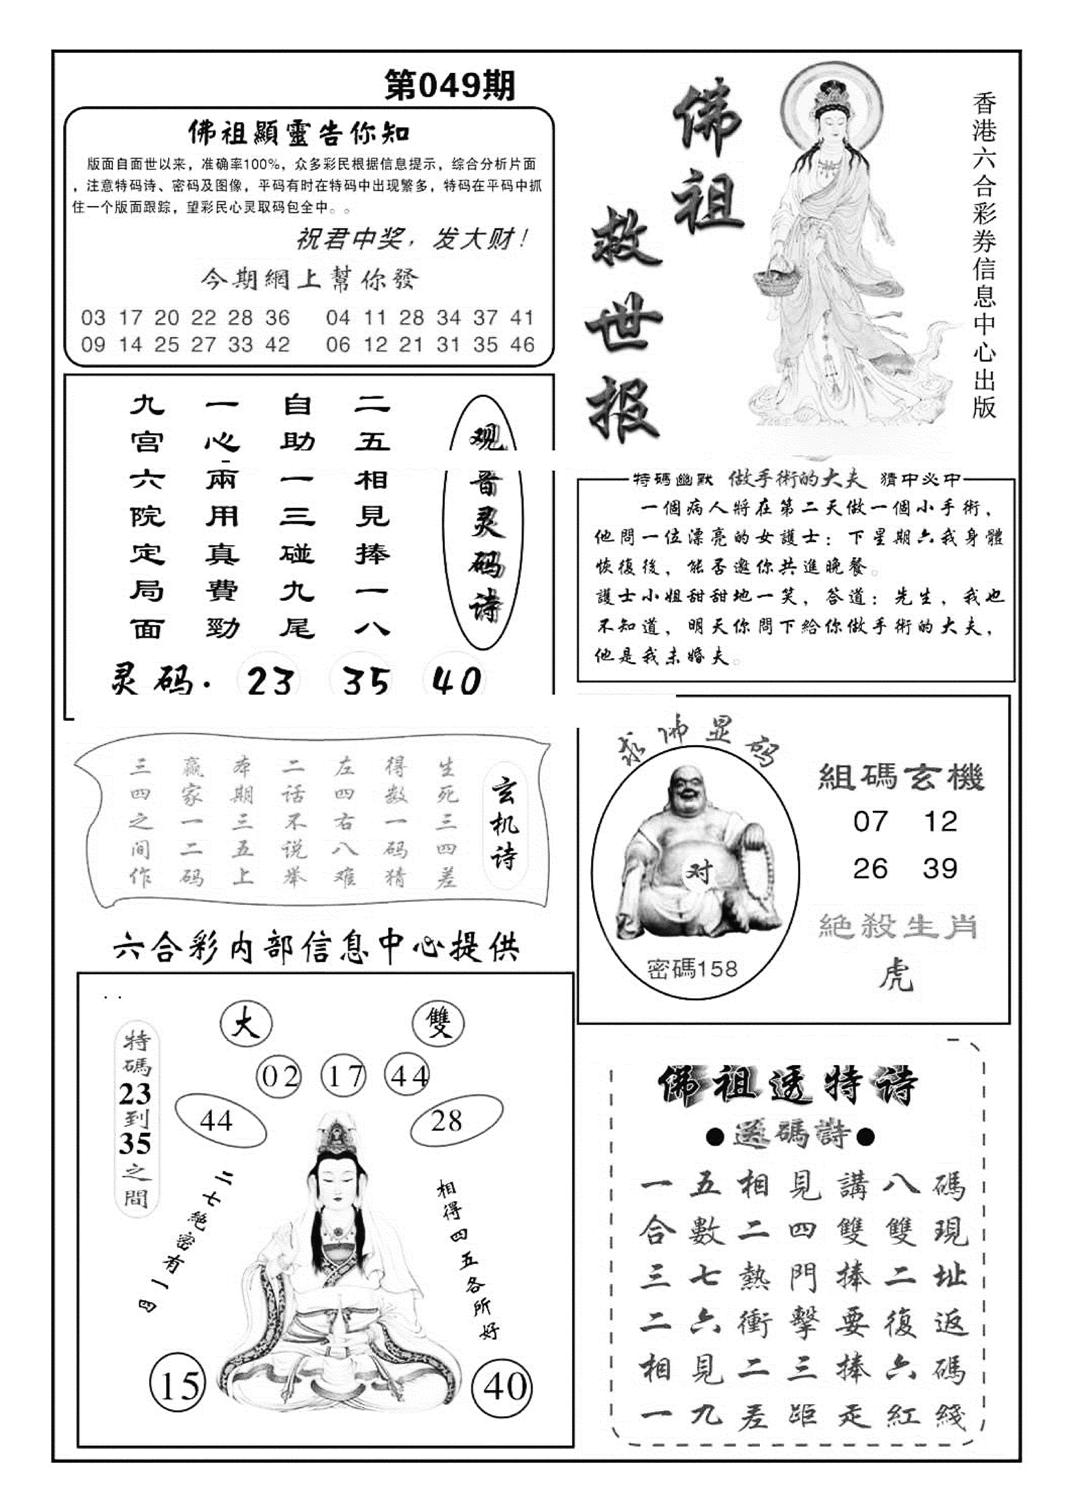 第049期
佛祖顯靈告你知
版面自面世以来，准确率100%，众多彩民根据信息提示，综合分析片面
，注意特码诗、密码及图像，平码有时在特码中出现繁多，特码在平码中抓
住一个版面跟踪，望彩民心灵取码包全中。。
祝君中奖，发大财！
今期網上幫你發
03 17 20 22 28 36 04 11 28 34 37 41
09 14 25 27 33 42 06 12 21 31 35 46
佛祖
救世报
香港六合彩券信息中心出版
观音灵码诗
二五相見捧一八
自助一三碰九尾
一心兩用真費勁
九宫六院定局面
灵码. 23 35 40
特碼幽默 做手術的大夫 猜中必中
一個病人將在第二天做一個小手術，
他問一位漂亮的女護士：下星期六我身體
恢復後，能否邀你共進晚餐。
護士小姐甜甜地一笑，答道：先生，我也
不知道，明天你問下給你做手術的大夫，
他是我未婚夫。
玄机诗
生死三四差
得数一码猜
左四右八难
二话不说举
本期三五上
赢家一二码
三四之间作
求佛显码
对
密碼158
組碼玄機
07 12
26 39
絕殺生肖
虎
六合彩内部信息中心提供
. .
大
雙
特碼23到35之間
02 17 44
44 28
二七絕密有一四
相得四五各所好
15 40
佛祖透特诗
●送碼詩●
一五相見講八碼
合數二四雙雙現
三七熱門捧二址
二六衝擊要復返
相見二三捧六碼
一九差距走紅綫